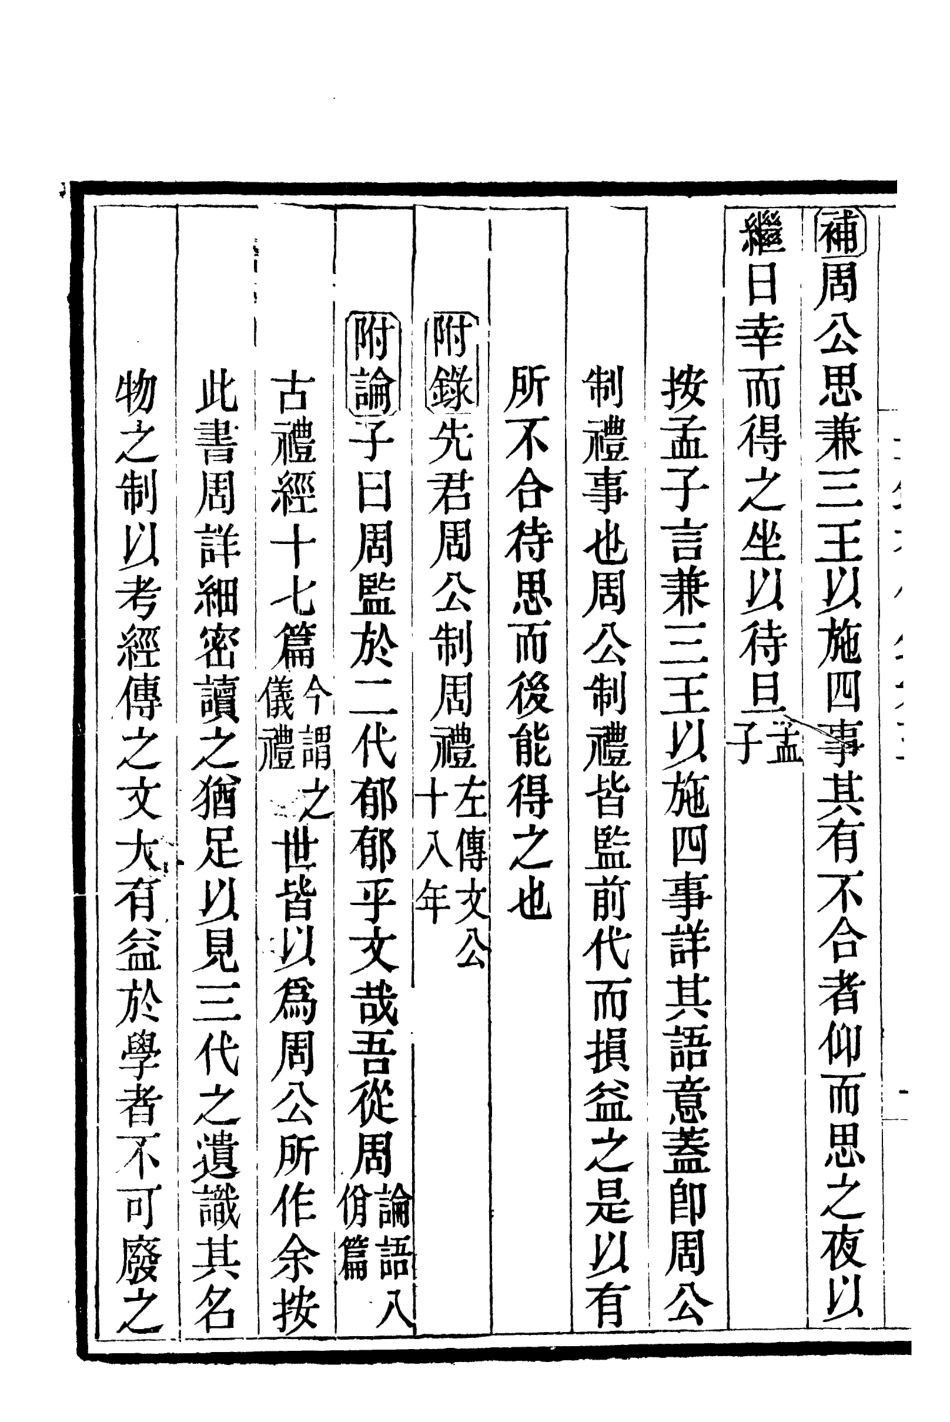 補周公思兼三王以施四事其有不合者仰而思之夜以
繼日幸而得之坐以待旦孟子
按孟子言兼三王以施四事詳其語意蓋卽周公
制禮事也周公制禮皆監前代而損益之是以有
所不合待思而後能得之也
附錄先君周公制周禮左傳文公十八年
附論子曰周監於二代郁郁乎文哉吾從周論語八佾篇
古禮經十七篇今謂之儀禮世皆以爲周公所作余按
此書周詳細密讀之猶足以見三代之遺識其名
物之制以考經傳之文大有益於學者不可廢之